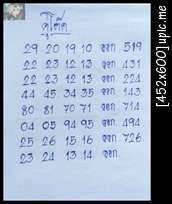 คู่โต๊ด
29 20 19 10 ออก 519
22 23 12 13 ออก 431
22 23 12 13 ออก 224
44 45 34 35 ออก 143
80 81 70 71 ออก 714
04 05 94 95 ออก 494
25 26 15 16 ออก 726
23 24 13 14 ออก
[452x600] upic.me